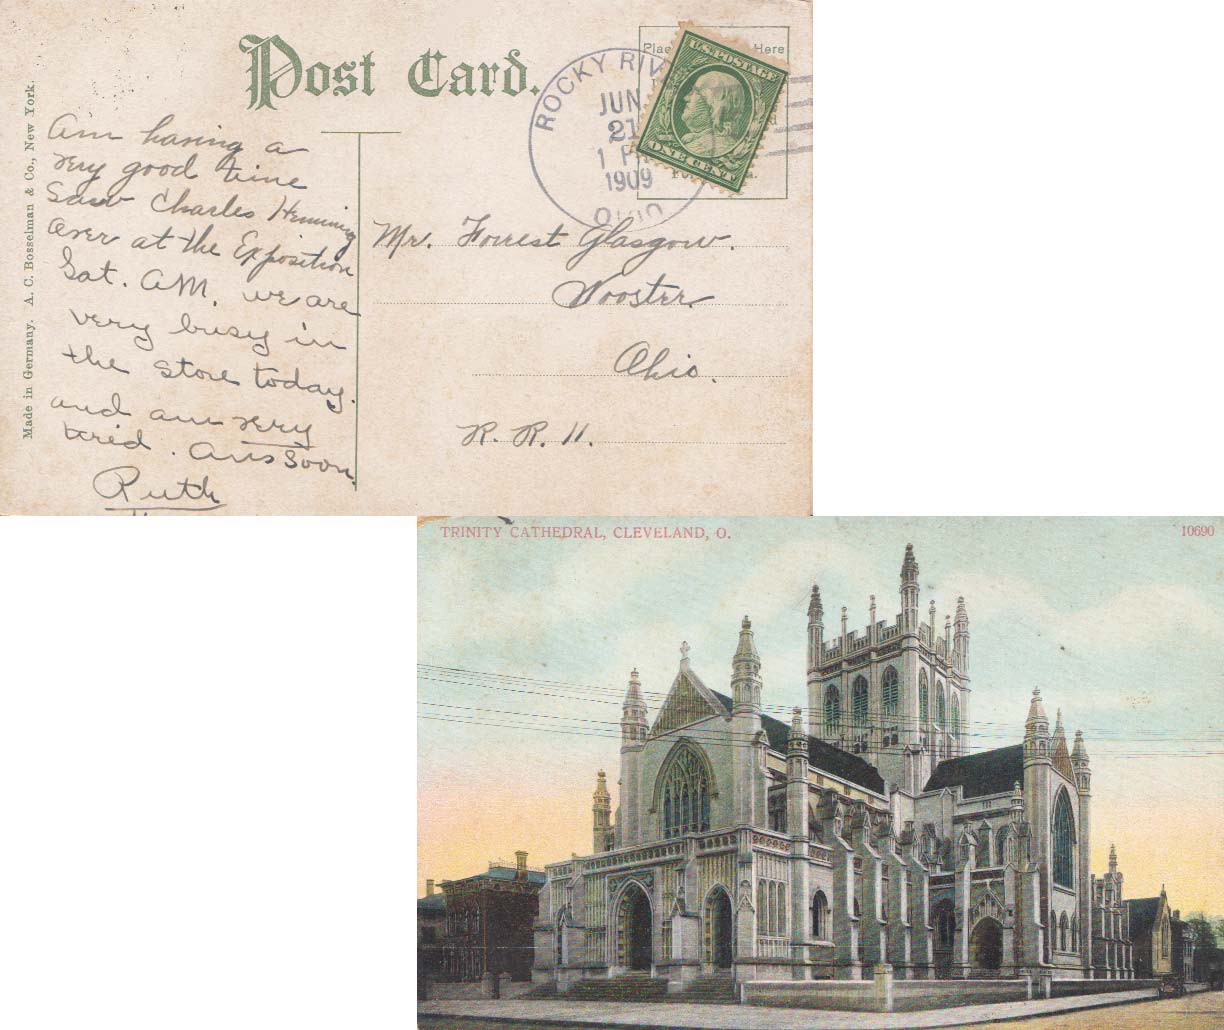 Post Card.
Made in Germany. A. C. Bosselman & Co., New York.
Am having a
very good time
Saw Charles Henning
over at the Exposition
Sat. A.M. we are
very busy in
the store today.
and am very
tired. Ans soon
Ruth
ROCKY RIV
JUN
21
1 P
1909
OHIO
Place Here
U.S. POSTAGE
ONE CENT
Mr. Forrest Glasgow.
Wooster
Ohio.
R. R. 11.
TRINITY CATHEDRAL, CLEVELAND, O.
10690